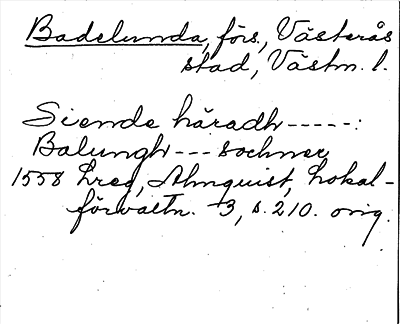 Badelunda, förs, Västerås
stad, Västm. l.
Siende häradh-----:
Balungh---sochner
1558 Lreg, Almquist, Lokal-
förvaltn. 3, s. 210. orig.